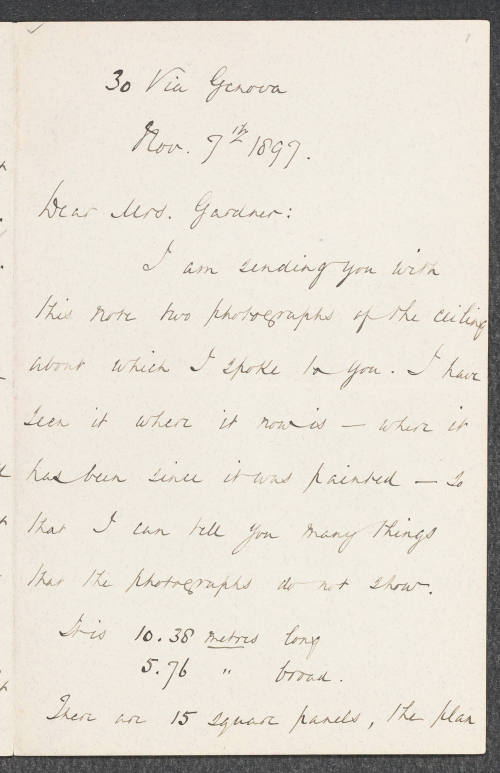 30 Via Genova
Nov. 7th 1897.
Dear Mrs. Gardner:
I am sending you with
this note two photographs of the ceiling
about which I spoke to you. I have
seen it where it now is – where it
has been since it was painted – so
that I can tell you many things
that the photographs do not show.
It is 10.38 metres long
5.76 " broad.
There are 15 square panels, the plan